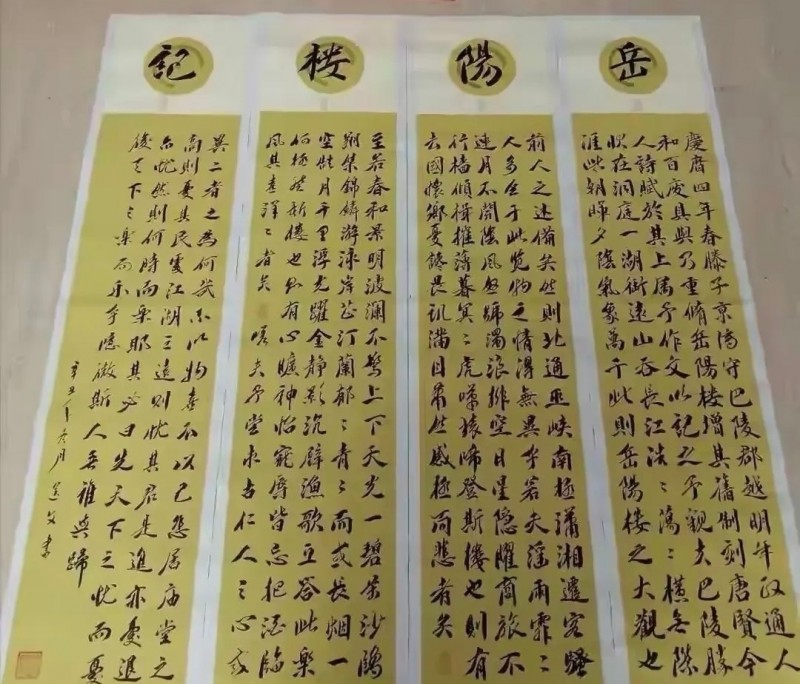 岳陽楼記
慶曆四年春滕子京谪守巴陵郡越明年政通人
和百废具興乃重脩岳陽楼增其舊制刻唐賢今
人詩賦於其上属予作文以記之予觀夫巴陵勝
状在洞庭一湖衔遠山吞長江浩々蕩々橫無際
涯此朝暉夕陰氣象萬千此則岳陽楼之大觀也
前人之述備矣然則北通巫峡南極瀟湘遷客騷
人多会于此覽物之情得無異乎若夫淫雨霏々
連月不開陰風怒號濁浪排空日星隱曜商旅不
行檣傾楫摧薄暮冥々虎嘯猿啼登斯楼也則有
去國懷鄉憂讒畏訊滿目萧然感極而悲者矣
至若春和景明波瀾不驚上下天光一碧沙鷗
翔集錦鱗游泳岸芷汀蘭郁々青々而或長烟一
空皓月千里浮光躍金静影沉璧漁歌互答此樂
何極登斯楼也則有心曠神怡寵辱皆忘把酒臨
風其喜洋々者矣 嗟夫予嘗求古仁人之心或
異二者之為何哉不以物喜不以己悲居庙堂之
高則憂其民處江湖之遠則忧其君是進亦憂退
亦忧然則何時而樂耶其必曰先天下之忧而憂
後天下之樂而乐乎噫微斯人吾誰與歸
辛丑年六月 書